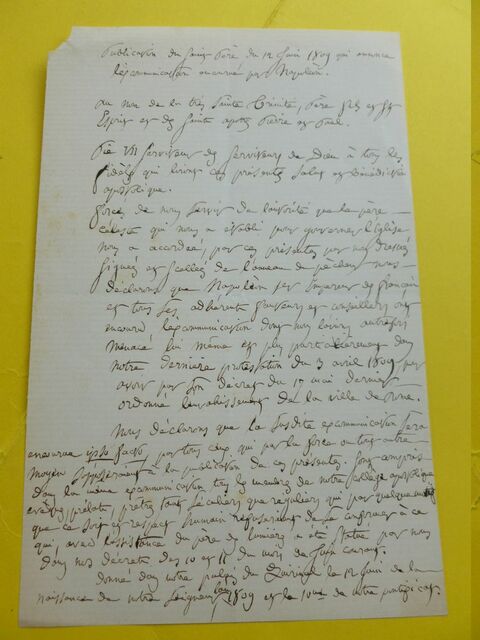 Publication du Saint Père du 12 Juin 1809 qui annonce
l'excommunication encourue par Napoléon.
Au nom de la très Sainte Trinité, Père fils et St
Esprit et des Saints apotres Pierre et Paul.
Pie VII Serviteur des Serviteurs de Dieu à tous les
fidèles qui liront ces présentes Salut et bénédiction
apostolique.
forcés de nous servir de l'autorité que le père
céleste qui nous a établi pour gouverner l'église
nous a accordée, par ces présentes par nous dressées
signées et scellées de l'anneau du pêcheur nous
déclarons que Napoléon 1er Empereur des français
et tous ses adhérents fauteurs et conseillers ont
encouru l'excommunication dont nous l'avions autrefois
menacé lui même et plus particulièrement dans
notre dernière protestation du 3 avril 1809 pour
avoir par son décret du 17 mai dernier
ordonné l'envahissement de la ville de Rome.
Nous déclarons que la susdite excommunication sera
encourue ipso facto par tous ceux qui par la force ou tout autre
moyen s'opposeront à la publication de ces présentes. Sont compris
dans la même excommunication tous les membres de notre collège apostolique
évêques, prélats, prêtres tant séculiers que réguliers qui par quelque motif
que ce soit et respect humain refuseraient de se conformer à ce
qui avec l'assistance du père de lumière a été statué par nous
dans nos décrets des 10 et 11 du mois de Juin courant.
donné dans notre palais du Quirinal le 12 Juin de la
naissance de notre Seigneur l'an 1809 et le 10me de notre pontificat.